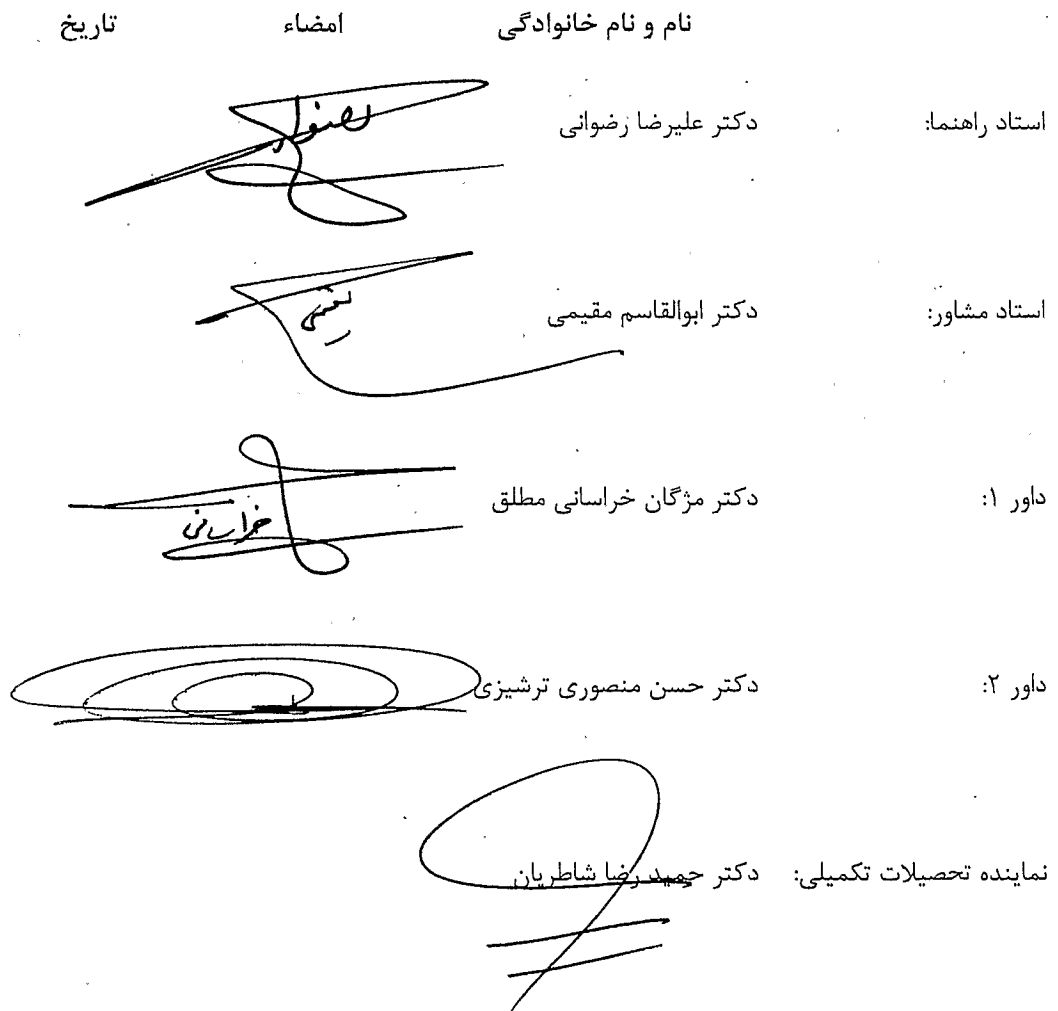 نام و نام خانوادگی امضاء تاریخ
استاد راهنما: دکتر علیرضا رضوانی
استاد مشاور: دکتر ابوالقاسم مقیمی
داور ۱: دکتر مژگان خراسانی مطلق خراسانی
داور ۲: دکتر حسن منصوری ترشیزی
نماینده تحصیلات تکمیلی: دکتر حمیدرضا شاطریان